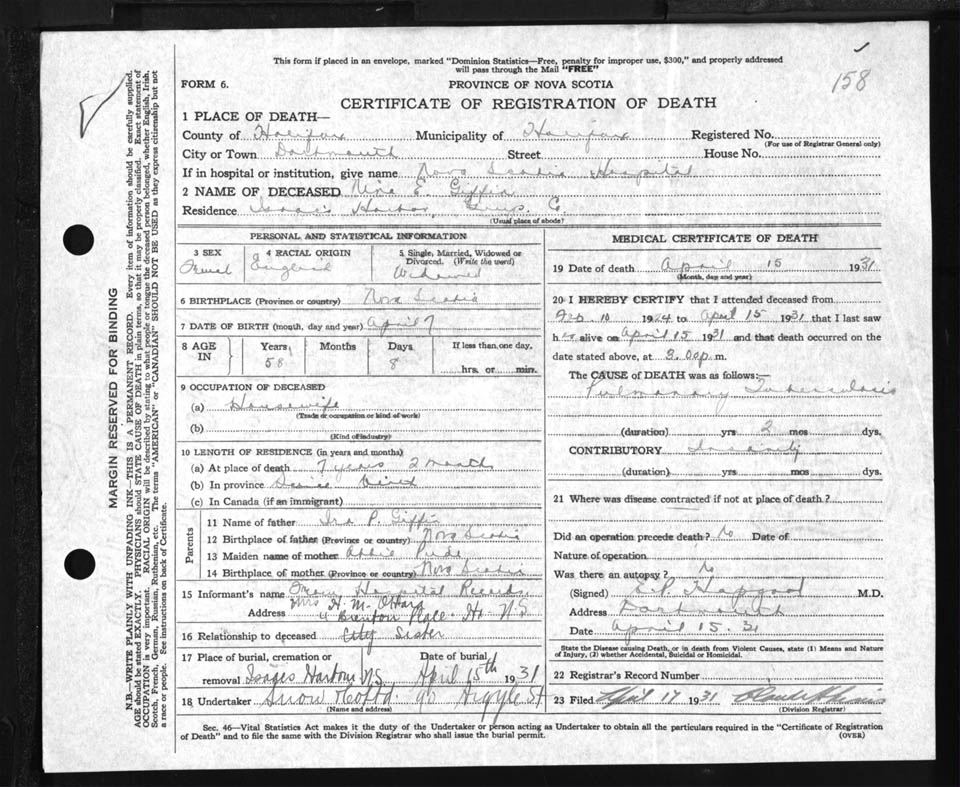 This form if placed in an envelope, marked "Dominion Statistics—Free, penalty for improper use, $300," and properly addressed
will pass through the Mail "FREE"
158
FORM 6.
PROVINCE OF NOVA SCOTIA
CERTIFICATE OF REGISTRATION OF DEATH
1 PLACE OF DEATH—
County of Halifax Municipality of Halifax Registered No.
(For use of Registrar General only)
City or Town Dartmouth Street House No.
If in hospital or institution, give name Nova Scotia Hospital
2 NAME OF DECEASED E. Giffin
Residence Isaacs Harbor, Co.
(Usual place of abode)
PERSONAL AND STATISTICAL INFORMATION
3 SEX
4 RACIAL ORIGIN
5 Single, Married, Widowed or Divorced. (Write the word)
Widowed
6 BIRTHPLACE (Province or country) Nova Scotia
7 DATE OF BIRTH (month, day and year) April 7
8 AGE IN
Years Months Days If less than one day,
58 8 hrs. or min.
9 OCCUPATION OF DECEASED
(a) Housewife
(Trade or occupation or kind of work)
(b)
(Kind of industry)
10 LENGTH OF RESIDENCE (in years and months)
(a) At place of death 7 years 2 months
(b) In province Since Birth
(c) In Canada (if an immigrant)
Parents
11 Name of father Ira P. Giffin
12 Birthplace of father (Province or country) Nova Scotia
13 Maiden name of mother Pride
14 Birthplace of mother (Province or country) Nova Scotia
15 Informant's name From Hospital Records
Mrs H. M. O'Hara
Address Brenton Place. Hx N.S
16 Relationship to deceased City Sister
17 Place of burial, cremation or Date of burial
removal Isaacs Harbour N.S. April 15th 1931
18 Undertaker Snow & Co Ltd. 90 Argyle St
(Name and address)
MEDICAL CERTIFICATE OF DEATH
19 Date of death April 15 1931
(Month, day and year)
20 I HEREBY CERTIFY that I attended deceased from
10 1924 to April 15 1931 that I last saw
h alive on April 15 1931 and that death occurred on the
date stated above, at p m.
The CAUSE of DEATH was as follows:—
Pulmonary Tuberculosis
(duration) yrs 2 mos dys.
CONTRIBUTORY Insanity
(duration) yrs mos dys.
21 Where was disease contracted if not at place of death?
Did an operation precede death? No Date of
Nature of operation
Was there an autopsy? No
(Signed) Hapgood M.D.
Address Dartmouth
Date April 15. 31
State the Disease causing Death, or in death from Violent Causes, state (1) Means and Nature
of Injury, (2) whether Accidental, Suicidal or Homicidal.
22 Registrar's Record Number
23 Filed April 17 1931
(Division Registrar)
Sec. 46—Vital Statistics Act makes it the duty of the Undertaker or person acting as Undertaker to obtain all the particulars required in the "Certificate of Registration
of Death" and to file the same with the Division Registrar who shall issue the burial permit.
(OVER)
MARGIN RESERVED FOR BINDING
N.B.—WRITE PLAINLY WITH UNFADING INK—THIS IS A PERMANENT RECORD. Every item of information should be carefully supplied.
AGE should be stated EXACTLY. PHYSICIANS should STATE CAUSE OF DEATH in plain terms, so that it may be properly classified. Exact statement of
OCCUPATION is very important. RACIAL ORIGIN will be described by stating to what people or tongue the deceased person belonged, whether English, Irish,
Scotch, French, German, Russian, Ruthenian, etc. The terms "AMERICAN" or "CANADIAN" SHOULD NOT BE USED as they express citizenship but not
a race or people. See instructions on back of Certificate.